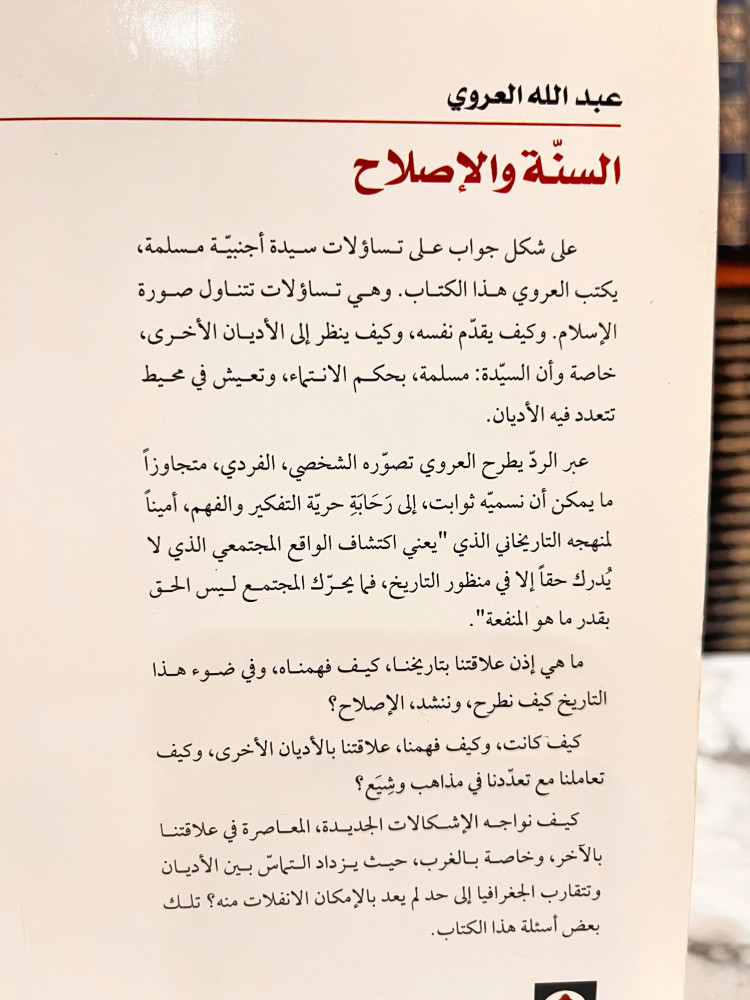 عبد الله العروي
السنّة والإصلاح
على شكل جواب على تساؤلات سيدة أجنبيّة مسلمة،
يكتب العروي هذا الكتاب. وهي تساؤلات تتناول صورة
الإسلام. وكيف يقدّم نفسه، وكيف ينظر إلى الأديان الأخرى،
خاصة وأن السيّدة: مسلمة، بحكم الانتماء، وتعيش في محيط
تتعدد فيه الأديان.
عبر الردّ يطرح العروي تصوّره الشخصي، الفردي، متجاوزاً
ما يمكن أن نسميّه ثوابت، إلى رَحَابَةِ حريّة التفكير والفهم، أميناً
لمنهجه التاريخاني الذي "يعني اكتشاف الواقع المجتمعي الذي لا
يُدرك حقاً إلا في منظور التاريخ، فما يحرّك المجتمع ليس الحق
بقدر ما هو المنفعة".
ما هي إذن علاقتنا بتاريخنا، كيف فهمناه، وفي ضوء هذا
التاريخ كيف نطرح، وننشد، الإصلاح؟
كيف كانت، وكيف فهمنا، علاقتنا بالأديان الأخرى، وكيف
تعاملنا مع تعدّدنا في مذاهب وشِيَع؟
كيف نواجه الإشكالات الجديدة، المعاصرة في علاقتنا
بالآخر، وخاصة بالغرب، حيث يزداد التماسّ بين الأديان
وتتقارب الجغرافيا إلى حد لم يعد بالإمكان الانفلات منه؟ تلك
بعض أسئلة هذا الكتاب.